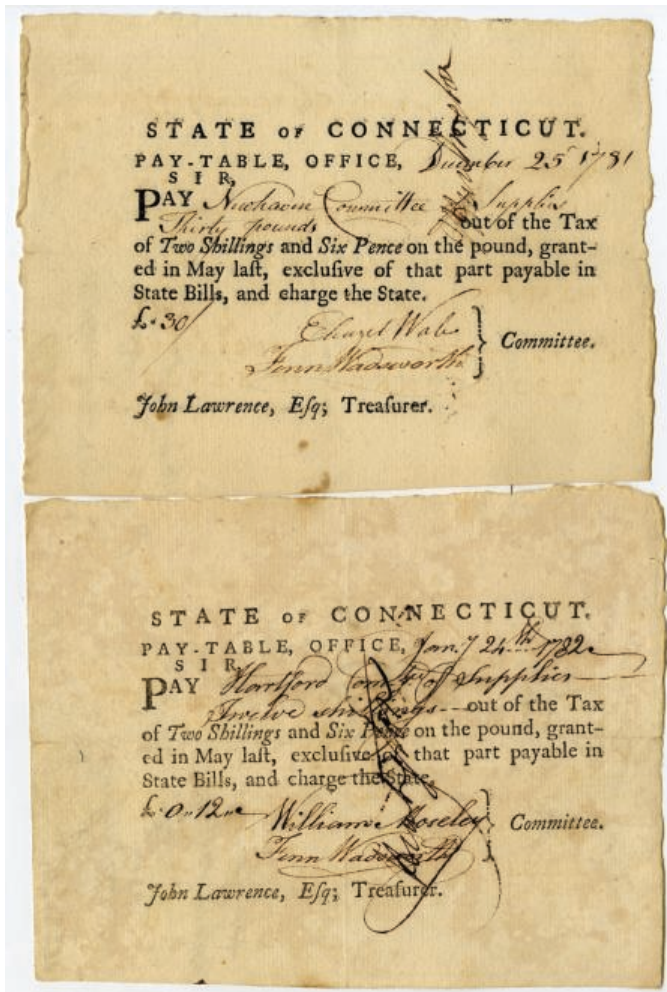 STATE OF CONNECTICUT.
PAY-TABLE, OFFICE, December 25 1781
SIR,
PAY Newhaven Committee of Supplies
Thirty pounds out of the Tax
of Two Shillings and Six Pence on the pound, grant-
ed in May laſt, excluſive of that part payable in
State Bills, and charge the State.
£. 30/
Eleazel Wales
Fenn Wadsworth } Committee.
John Lawrence, Eſq; Treaſurer.
STATE OF CONNECTICUT.
PAY-TABLE, OFFICE, Jan.y 24th 1782
SIR,
PAY Hartford Comtee of Supplies
Twelve shillings out of the Tax
of Two Shillings and Six Pence on the pound, grant-
ed in May laſt, excluſive of that part payable in
State Bills, and charge the State.
£. 0 " 12 "
William Moseley
Fenn Wadsworth } Committee.
John Lawrence, Eſq; Treaſurer.